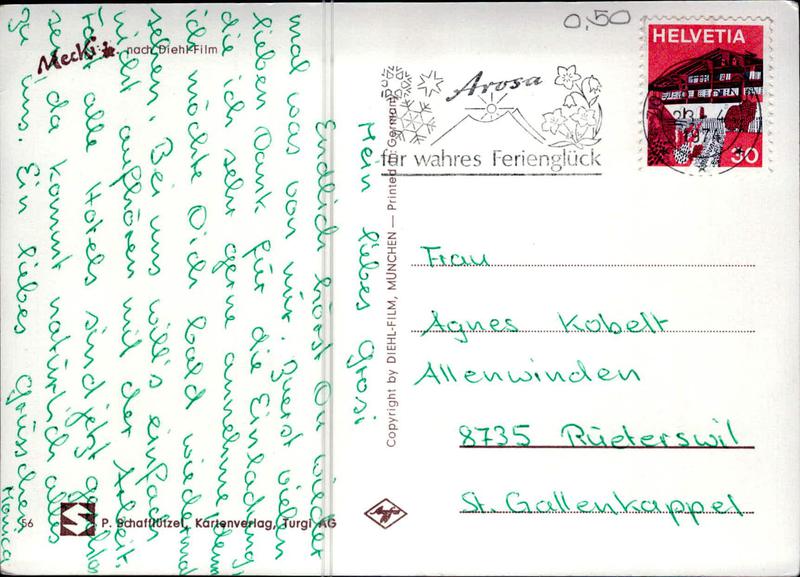 0,50
HELVETIA
30
Arosa
für wahres Ferienglück
Mecki nach Diehl-Film
Mein liebes Grosi
Endlich hörst Du wieder
mal was von mir. Zuerst vielen
lieben Dank für die Einladung,
die ich sehr gerne annehme, denn
ich möchte Dich bald wieder mal
sehen. Bei uns will's einfach
nicht aufhören mit der Arbeit.
Fast alle Hotels sind jetzt geschlos
sen, da kommt natürlich alles
zu uns. Ein liebes Grüsschen
Monica
Frau
Agnes Kobelt
Allenwinden
8735 Rüeterswil
St. Gallenkappel
Copyright by DIEHL-FILM, MÜNCHEN — Printed in Germany
56 P. Schafflützel, Kartenverlag, Turgi AG